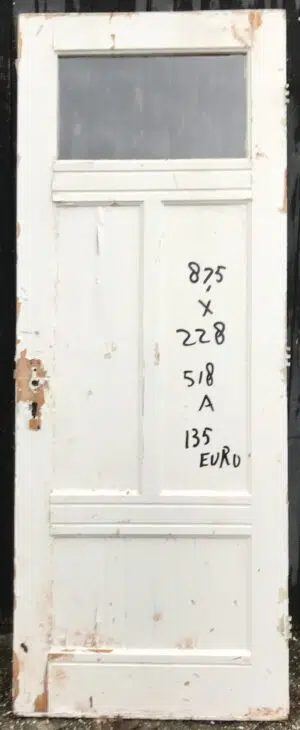 87,5
X
228
518
A
135
EURO